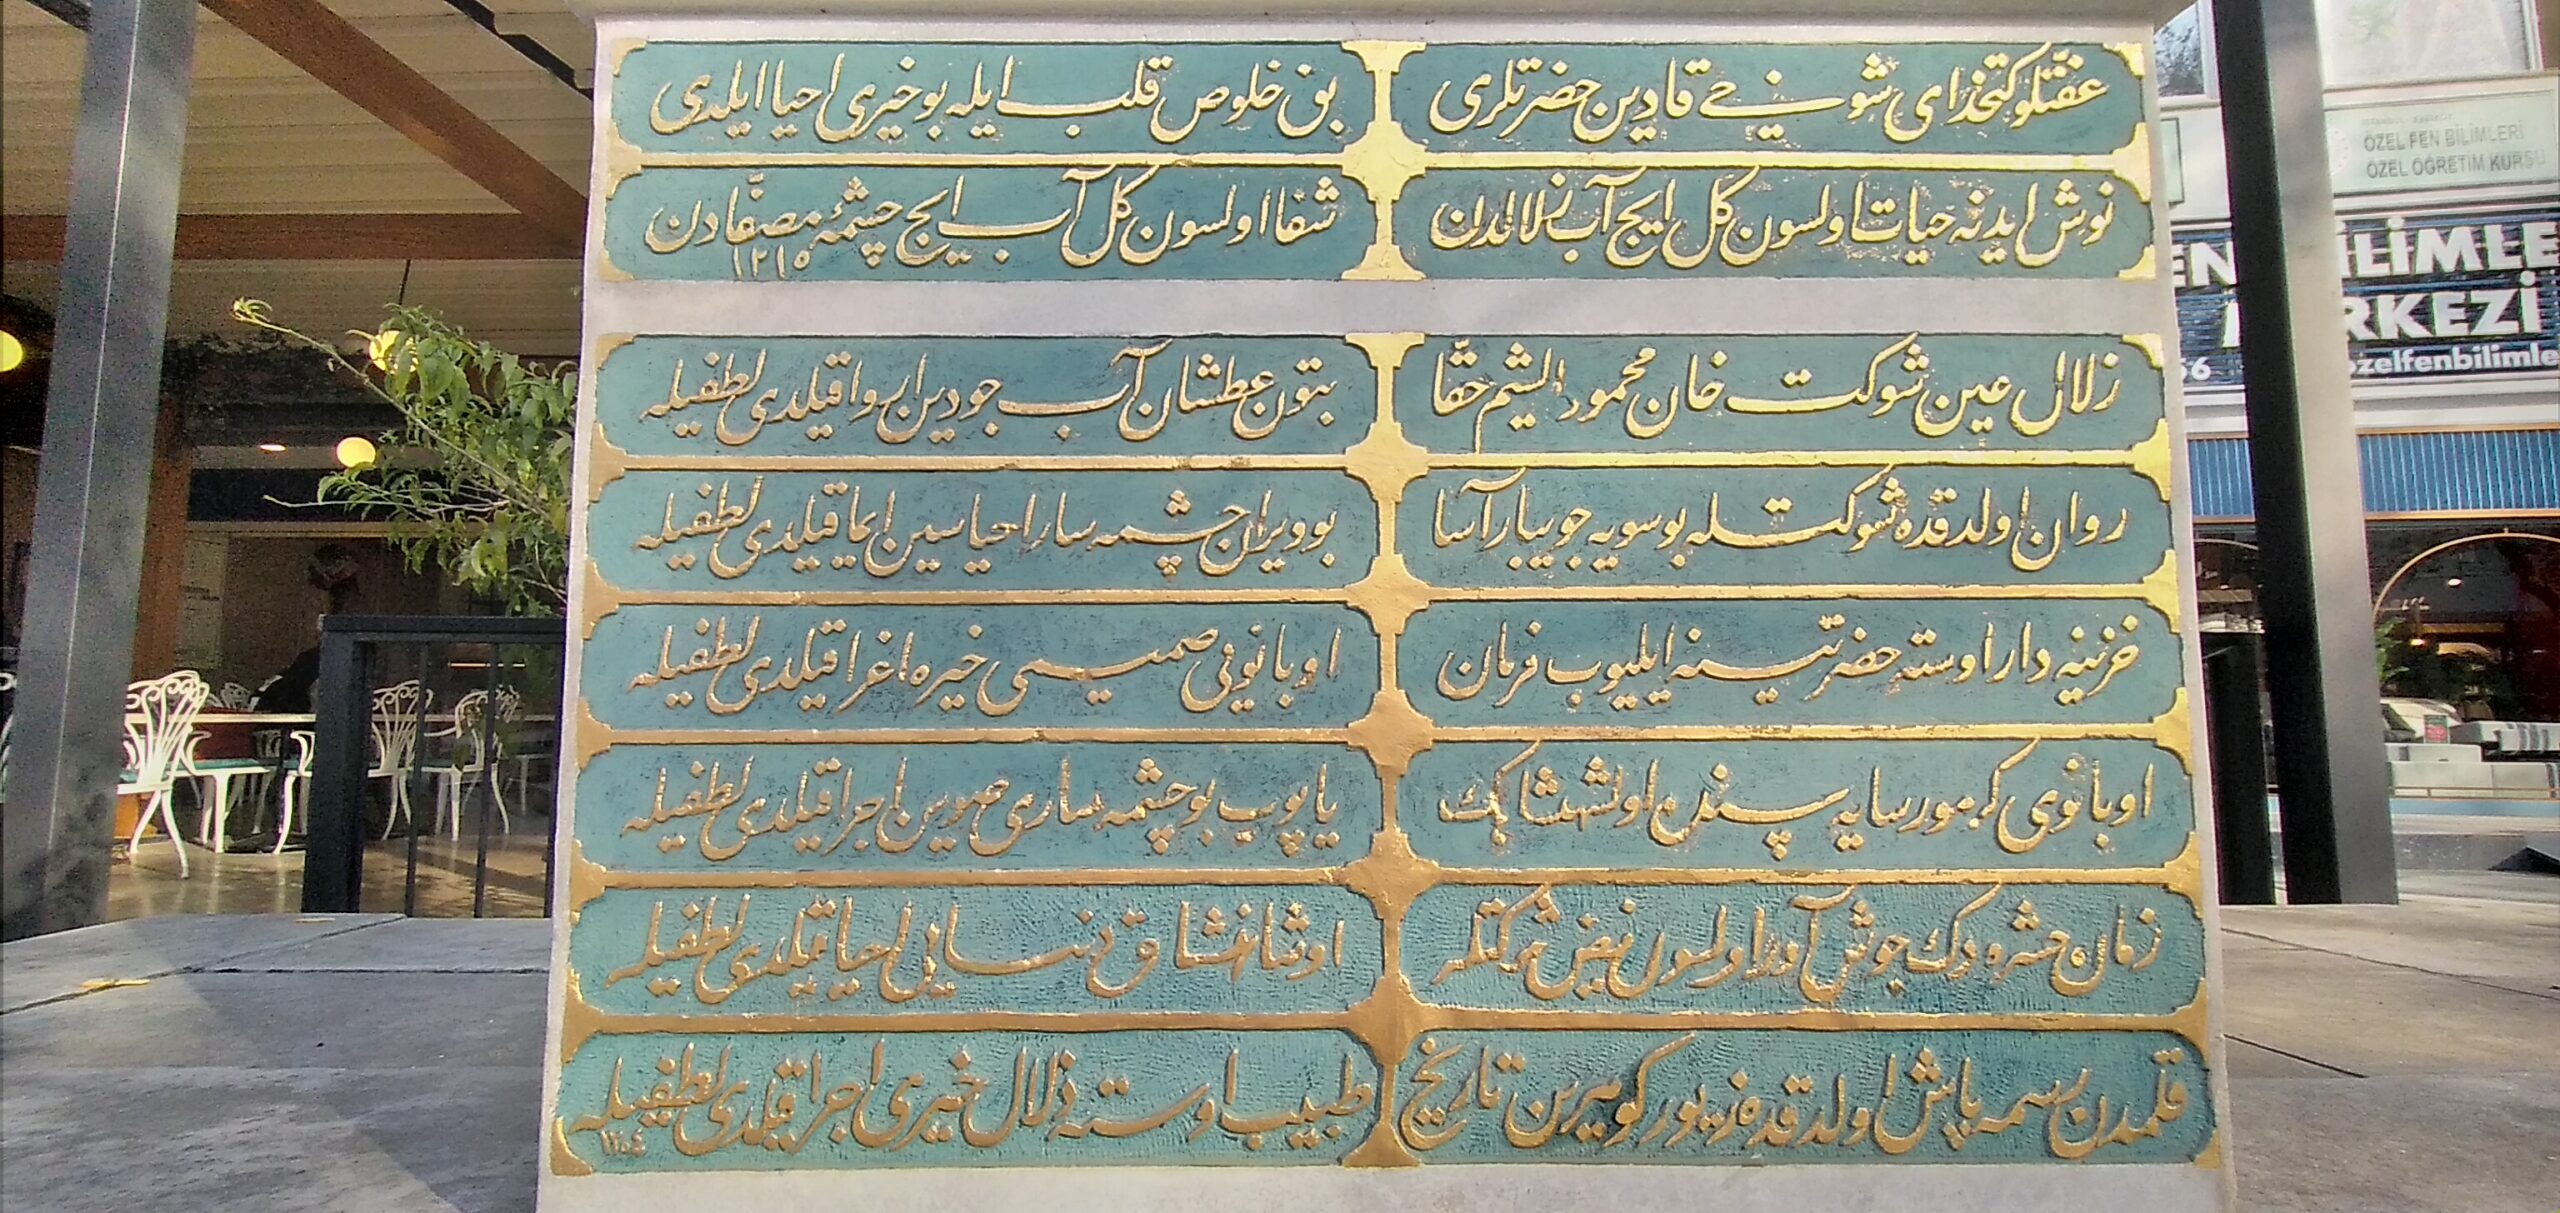 عفتلو كتخداى شونخى قادين حضرتلرى
بو خلوص قلب ايله بو خيرى احيا ايلدى
نوش ايدنه حيات اولسون كل ايچ آب زلالدن
شفا اولسون كل آب ايچ چشمۀ مصفادن
١٢١٥
زلال عين شوكت خان محمود الشيم حقّا
بتون عطشان آب جودين اروا قيلدى لطفيله
روان اولدقده شوكتله بو سويه جويبار آسا
بو ويران چشمه سار احياسين ايما قيلدى لطفيله
خزينه دار اوسته حضرتينه ايليوب فرمان
او بانويى صميمى خيره اغرا قيلدى لطفيله
او بانوى كرمور سايه سنده اول شهنشاهك
ياپوب بو چشمه سارى صوين اجرا قيلدى لطفيله
زمان حشره دك جوش آور اولسون فيض شوكتله
او شاهنشاق دنيايى احيا قيلدى لطفيله
قلمدن رسمه پاش اولدقده زيور كوهرين تاريخ
طبيب اوسته زلال خيرى اجرا قيلدى لطفيله
١٢٥٤
ÖZEL FEN BİLİMLERİ
ÖZEL ÖĞRETİM KURSU